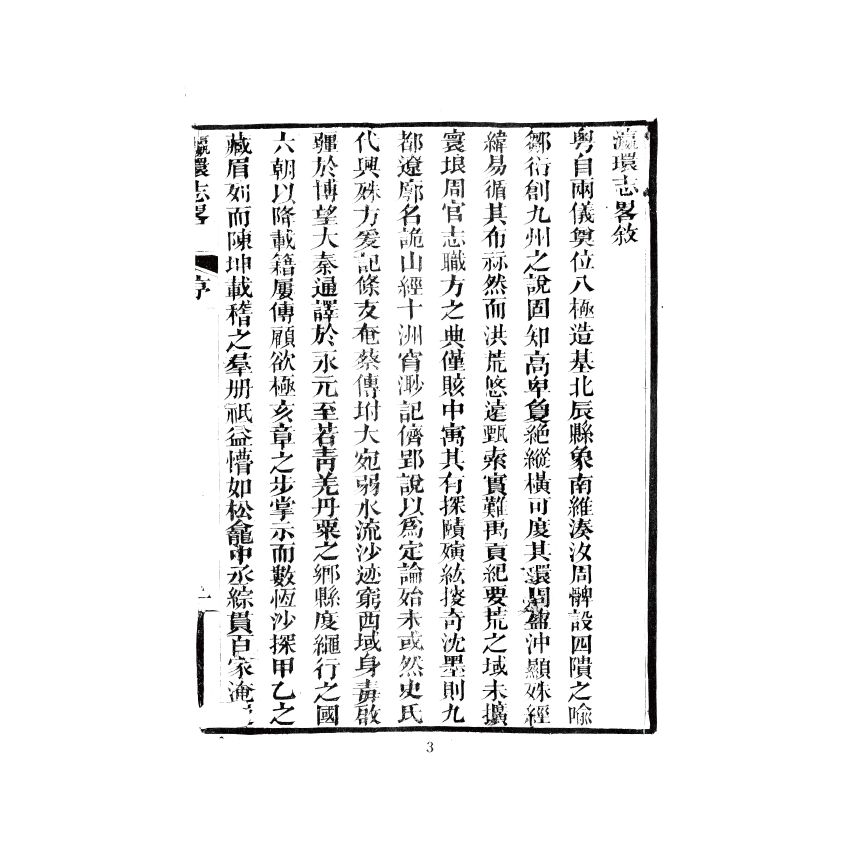 瀛環志畧敘
粵自兩儀奠位八極造基北辰縣象南維湊汝周髀設四隤之喻
鄒衍創九州之說固知高卑夐絕縱橫可度其環周盈沖顯姝經
緯易循其布祘然而洪荒悠遠甄索實難禹貢紀要荒之域未擴
寰埌周官志職方之典僅賅中寓其有探賾㙈紘摉奇沈墨則九
都遼廓名詭山經十洲宵渺記儕郢說以爲定論始未或然史氏
代興殊方爰記條支奄蔡傳坿大宛弱水流沙迹窮西域身毒啟
疆於博望大秦通譯於永元至若靑羌丹粟之鄉縣度繩行之國
六朝以降載籍屢傳顧欲極亥章之步掌示而數恆沙探甲乙之
藏眉列而陳坤載稽之羣册祇益懵如松龕中丞綜貫百家淹
瀛環志畧
序
一
3